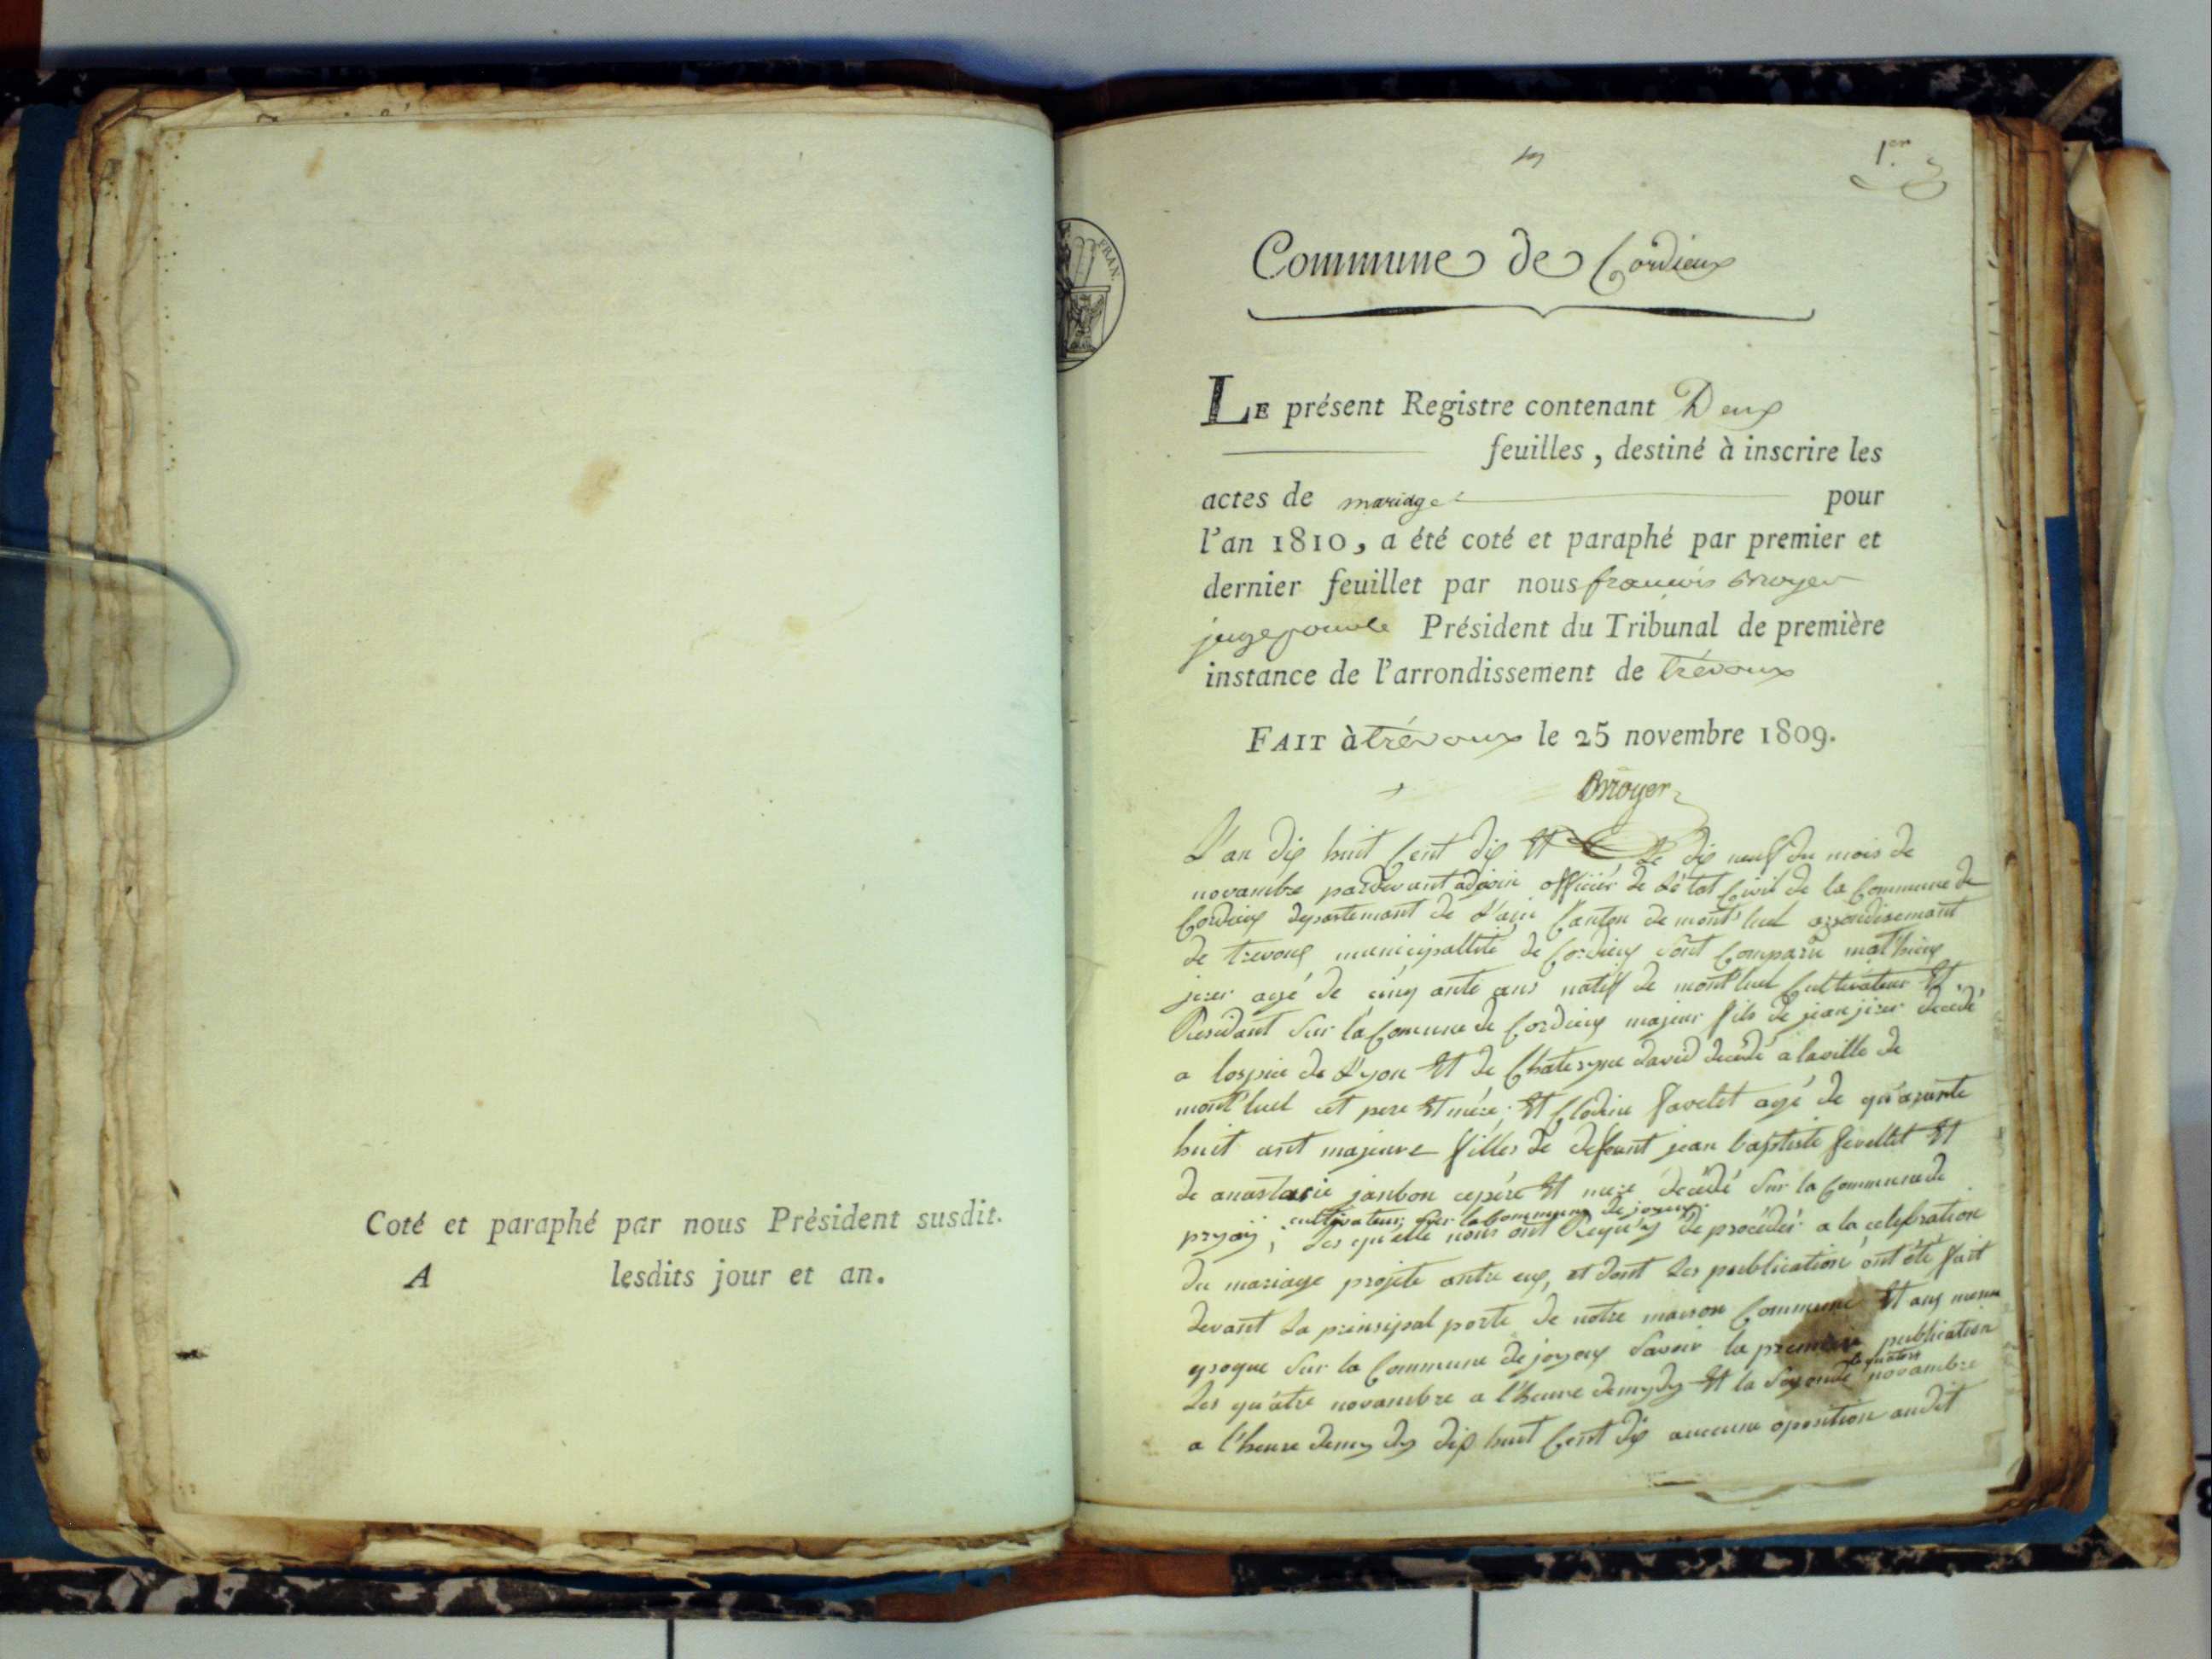 Coté et paraphé par nous Président susdit.
A lesdits jour et an.
1er
FRAN.
Commune de Cordieux
LE présent Registre contenant Deux
feuilles, destiné à inscrire les
actes de mariage pour
l'an 1810, a été coté et paraphé par premier et
dernier feuillet par nous françois Broyer
juge pour le Président du Tribunal de première
instance de l'arrondissement de trévoux
FAIT à trévoux le 25 novembre 1809.
Broyer
L'an dix huit Cent dix Et Le dix neuf du mois de
novambre pardevant adjoin officiér de L'étot Civil de la Commune de
Cordieux departemant de L'ain Canton de mont luel arrondisemant
de trevoux municipallité de Cordieux sont Comparu mathieux
jezer agé de cinq ante ans natif de mont luel Cultivateur Et
Residant sur la Comune de Cordieux majeur fils de jean jezer decedé
a lospice de Lyon Et de Chaterine david decédé a laville de
mont luel cet pere Et mére; Et Clodine favelet agé de quarante
huit ant majeure filles de defeunt jean baptiste fevellet Et
de anastasie janbon cepére Et mere decédé sur la Commune de
cultivateur sur la Commune de joyeux
les qu'elle nous ont Requis de procéder a la celebration
du mariage projeté antre eux, et dont Les publication ont été fait
devant La prinsipal porte de notre maison Commune Et aux meme
epoque sur la Commune de joyeux savoir la premiere publication
Les quatre novambre a l'heure demydy Et la segonde novambre
a l'heure demy dy dix huit Cent dix aucune oposition audit